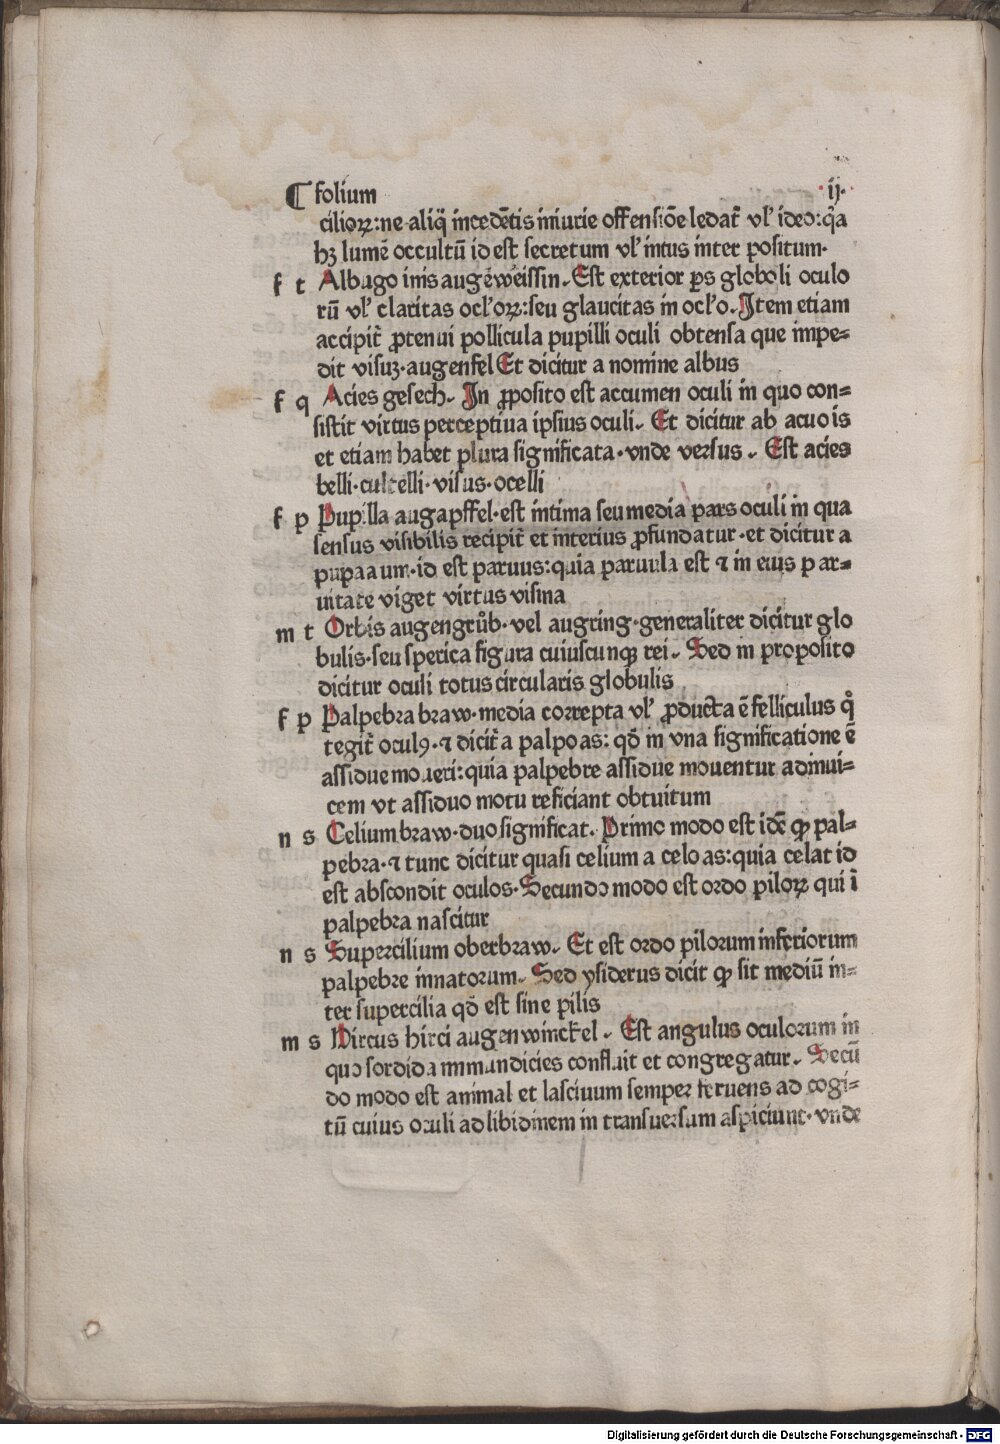 ¶ folium ·ij·
cilioꝝ:ne aliq̈ incedētis iniurie offensiōe ledat᷑ vl' ideo:q̇a
hꝫ lumē occultū id est secretum vl' intus inter positum·
f t Albugo inis augēweissin. Est exterior ꝑs globoli oculo
rū vl' claritas ocl'oꝝ:seu glaucitas in ocl'o. Item etiam
accipit᷑ ꝓtenui pollicula pupilli oculi obtensa que impe⸗
dit visuꝫ·augenfel Et dicitur a nomine albus
f q Acies gesech. In ꝓposito est accumen oculi in quo con⸗
sistit virtus perceptiua ipsius oculi. Et dicitur ab acuo is
et etiam habet plura significata·vnde versus. Est acies
belli·cultelli·visus·ocelli
f p Pupilla augapffel·est intima seu media pars oculi in qua
sensus visibilis recipit᷑ et interius ꝓfundatur·et dicitur a
pupaaum·id est paruus:quia paruula est ⁊ in eius par⸗
uitate viget virtus visiua
m t Orbis augengrůb·vel augring·generaliter dicitur glo
bulis·seu sperica figura cuiuscunqꝫ rei. Sed in proposito
dicitur oculi totus circularis globulis
f p Palpebra braw·media correpta vl' ꝓducta ē felliculus q̊
tegit᷑ oculꝰ·⁊ dicit᷑ a palpo as: qd̄ in vna significatione ē
assidue moueri:quia palpebre assidue mouentur adinui⸗
cem vt assiduo motu reficiant obtuitum
n s Celium braw·duo significat. Primo modo est idē ꝙ pal⸗
pebra·⁊ tunc dicitur quasi celium a celo as:quia celat id
est abscondit oculos·Secundo modo est ordo piloꝝ qui ī
palpebra nascitur
n s Supercilium oberbraw. Et est ordo pilorum inferiorum
palpebre innatorum. Sed ysiderus dicit ꝙ sit mediū in⸗
ter supercilia qd̄ est sine pilis
m s Hircus hirci augenwinckel. Est angulus oculorum in
quo sordida immundicies confluit et congregatur. Secū
do modo est animal et lasciuum semper feruens ad cogi⸗
tū cuius oculi ad libidinem in transuersum aspiciunt·vnde
Digitalisierung gefördert durch die Deutsche Forschungsgemeinschaft · DFG